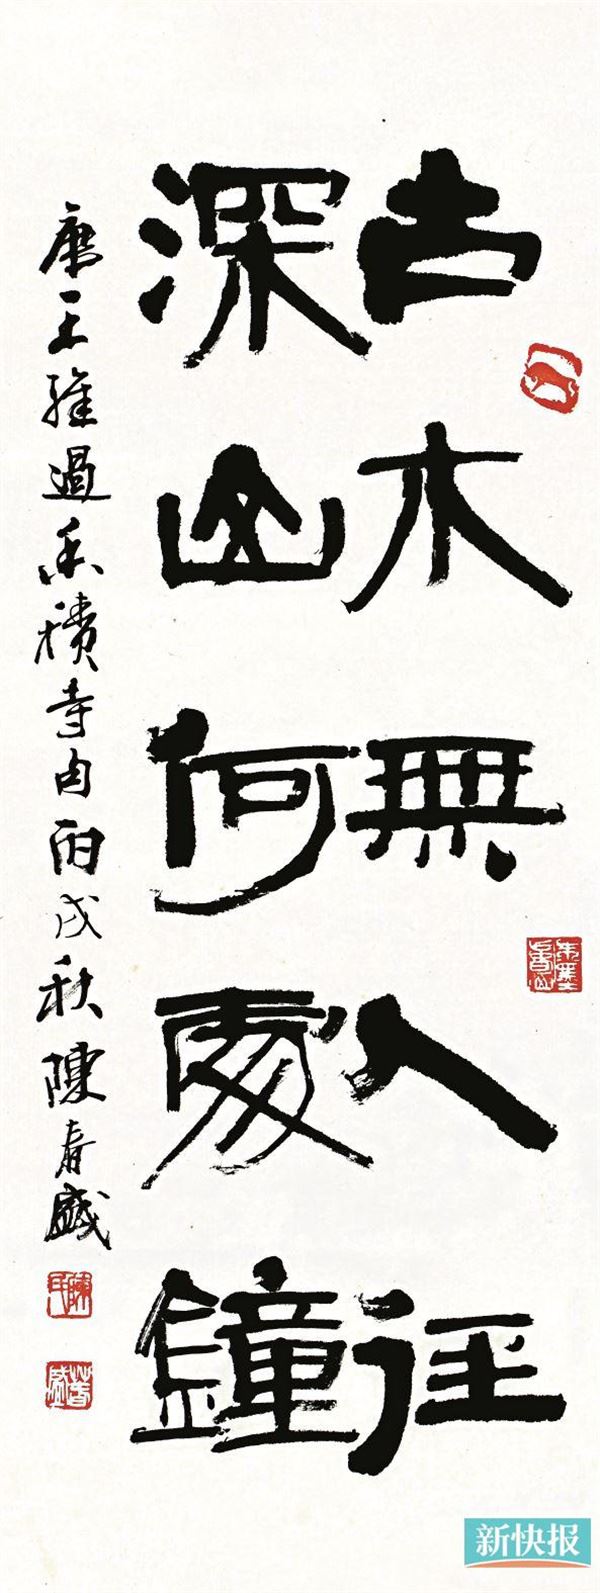 古木無人径
深山何處鐘
唐王維過香積寺句丙戌秋陳春盛
新快报